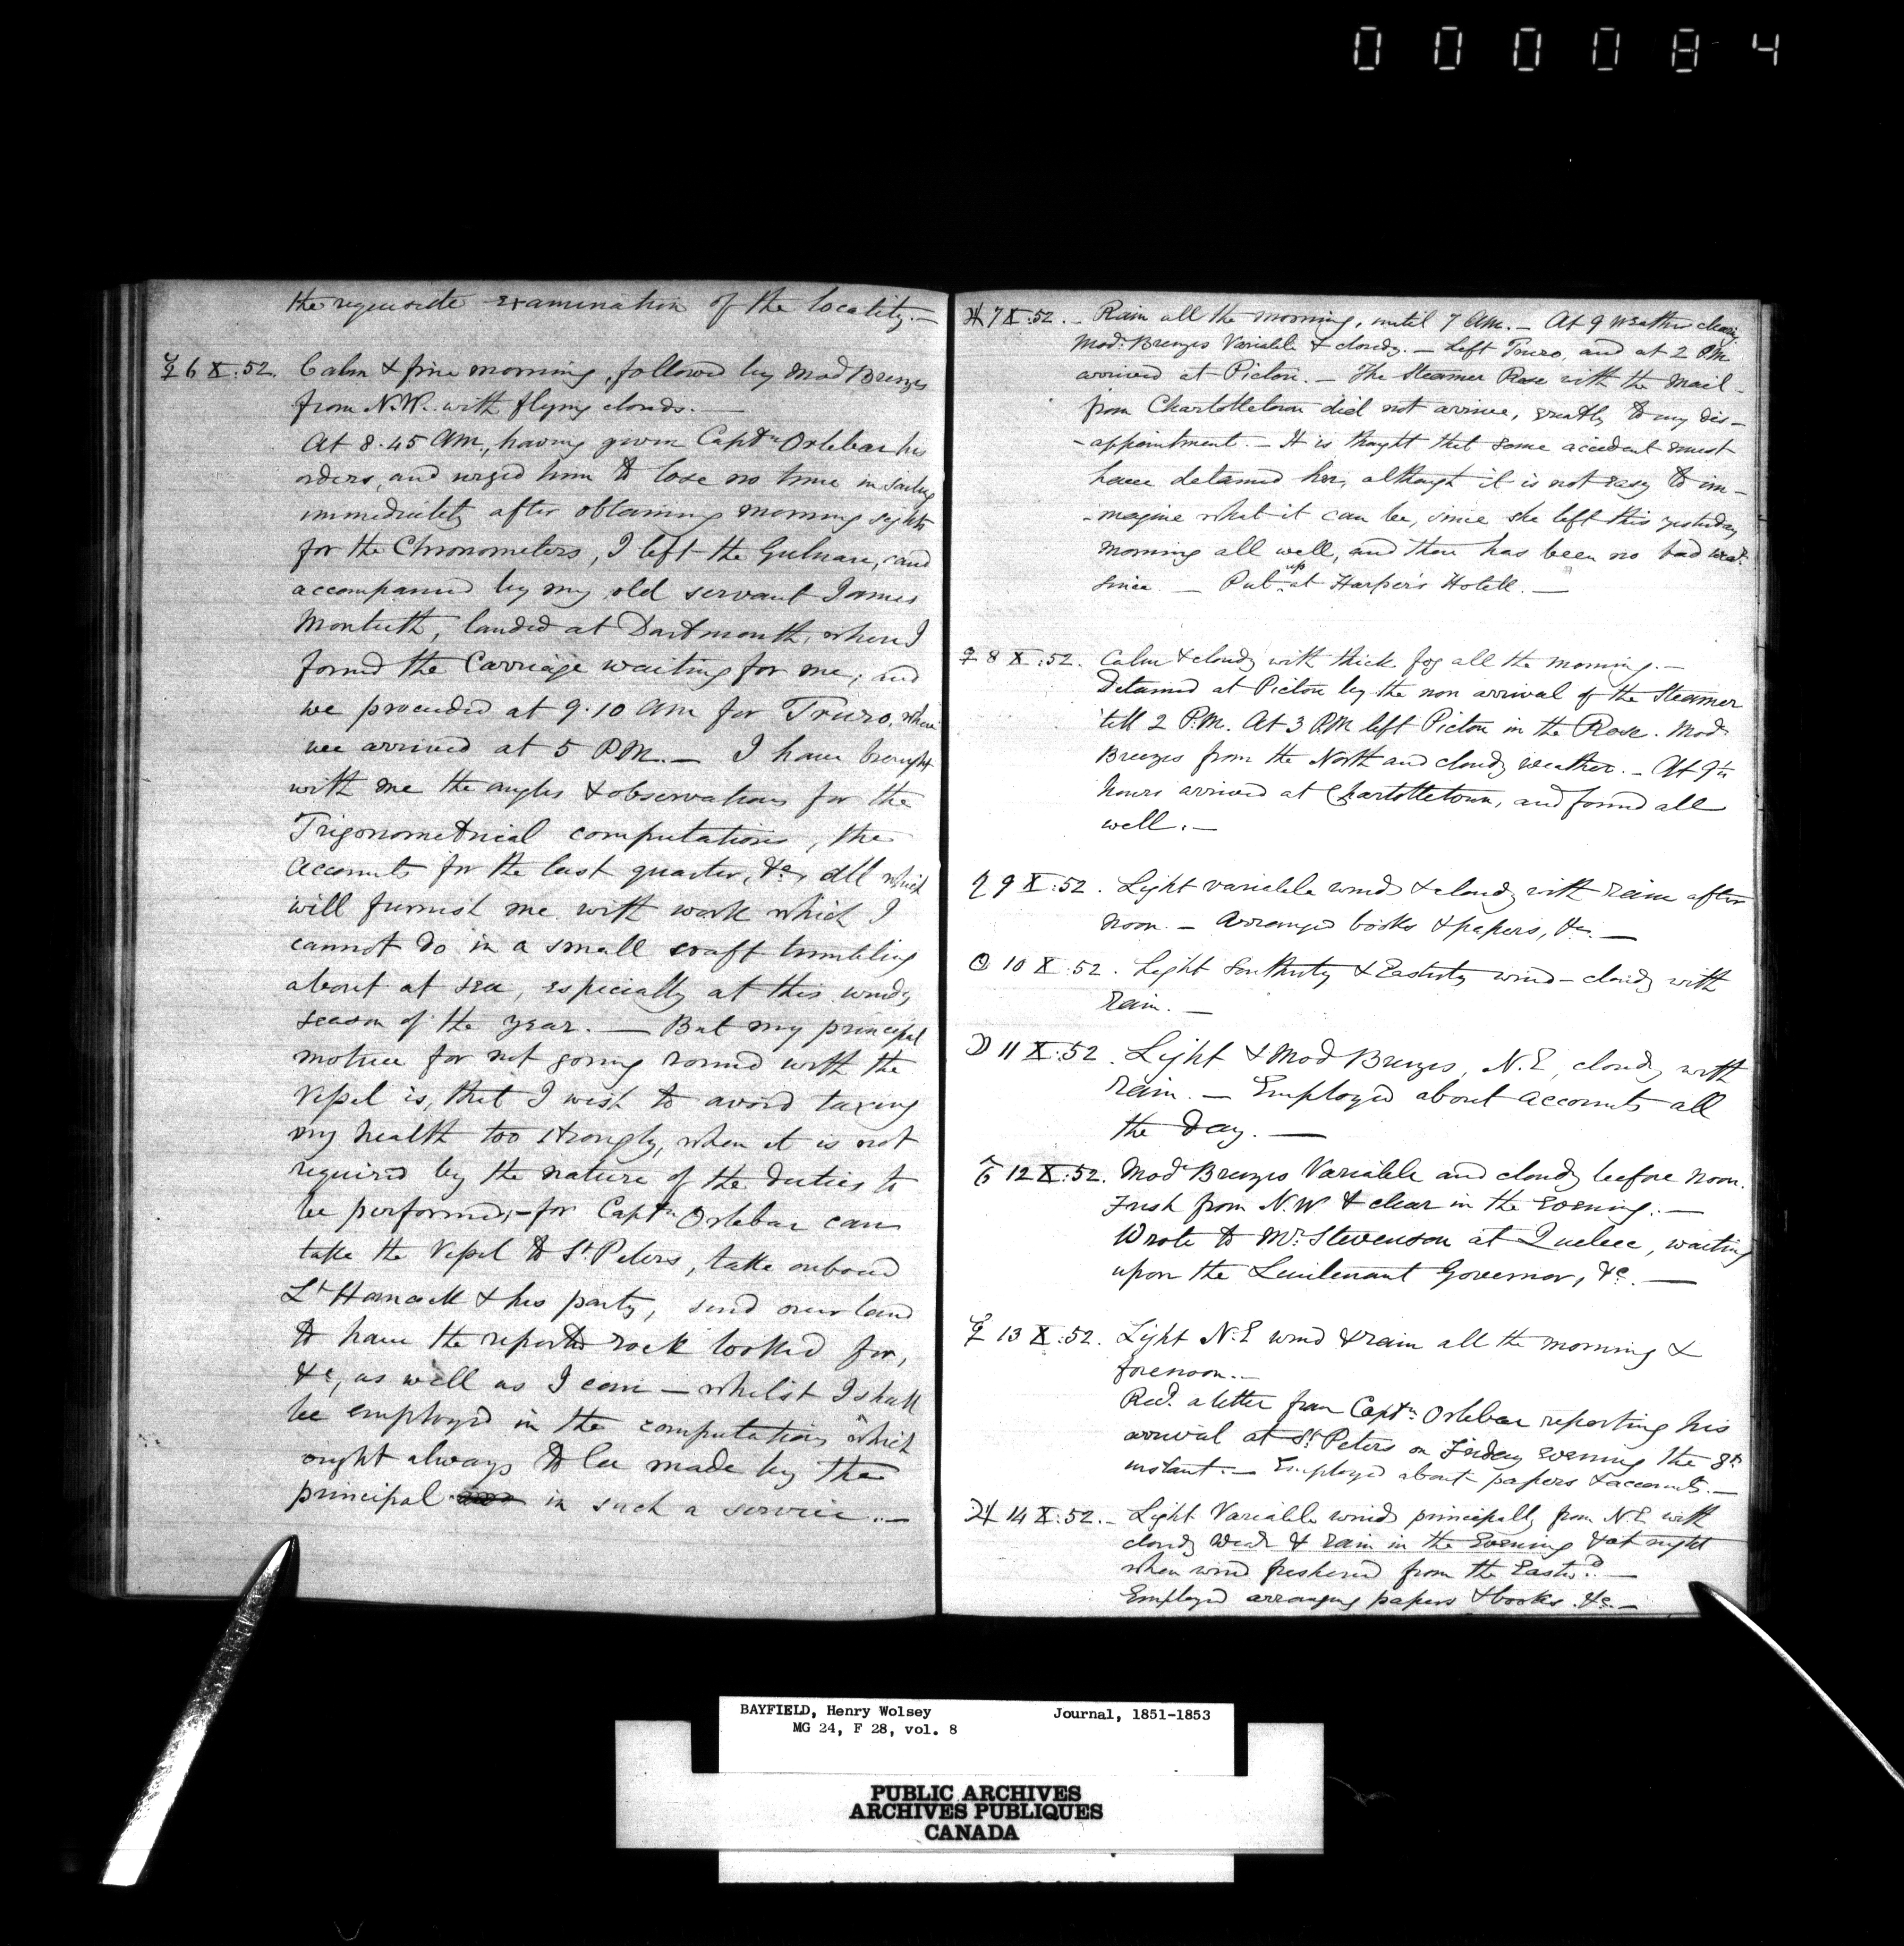 000084
the requisite examination of the locality.—
☿ 6 X:52. Calm & fine morning, followed by Mod Breezes
from N.W. with flying clouds.—
At 8.45 AM, having given Captn Orlebar his
orders, and urged him to lose no time in sailing
immediately after obtaining morning sights
for the Chronometers, I left the Gulnare, and
accompanied by my old servant James
Monteith, landed at Dartmouth, where I
found the Carriage waiting for me; and
we proceeded at 9.10 AM for Truro, where
we arrived at 5 PM.— I have brought
with me the angles & observations for the
Trigonometrical computations, the
accounts for the last quarter, &c, all which
will furnish me with work which I
cannot do in a small craft tumbling
about at sea, especially at this windy
season of the year.— But my principal
motive for not going round with the
Vessel is, that I wish to avoid taxing
my health too strongly, when it is not
required by the nature of the duties to
be performed,—for Captn Orlebar can
take the Vessel to St. Peters, take onboard
Lt Hancock & his party, send over land
to have the reported rock looked for,
&c, as well as I can — whilst I shall
be employed in the computations which
ought always to be made by the
principal in such a service.—
♃ 7 X:52.— Rain all the morning, until 7 AM.— At 9 weather clearing,
Mod. Breezes Variable & cloudy.— Left Truro, and at 2 PM
arrived at Pictou.— The Steamer Rose with the Mail
from Charlottetown did not arrive, greatly to my dis-
-appointment.— It is thought that some accident must
have detained her, although it is not easy to im-
-magine what it can be, since she left this yesterday
morning all well, and there has been no bad weatr.
since.— Put up at Harper's Hotell.—
♀ 8 X:52. Calm & cloudy with thick fog all the morning.—
Detained at Pictou by the non arrival of the Steamer
'till 2 P.M. At 3 PM left Pictou in the Rose. Mod
Breezes from the North and cloudy weather.— At 9½
hours arrived at Charlottetown, and found all
well.—
♄ 9 X:52. Light variable winds & cloudy with rain after
noon.— Arranged books & papers, &c.—
☉ 10 X:52. Light Southerly & Easterly wind—cloudy with
rain.—
☽ 11 X:52. Light & Mod Breezes, N.E, cloudy with
rain.— Employed about accounts all
the day.—
♂ 12 X:52. Mod Breezes Variable and cloudy before noon.
Fresh from N.W & clear in the evening.—
Wrote to Mr. Stevenson at Quebec, waiting
upon the Lieutenant Governor, &c.—
☿ 13 X:52. Light N.E wind & rain all the morning &
forenoon.—
Recd. a letter from Captn Orlebar reporting his
arrival at St Peters on Friday evening the 8th
instant.— Employed about papers & accounts.—
♃ 14 X:52.— Light Variable winds principally from N.E with
cloudy Wear & rain in the Evening & at night
when wind freshened from the Eastwd.—
Employed arranging papers & books &c.—
BAYFIELD, Henry Wolsey Journal, 1851-1853
MG 24, F 28, vol. 8
PUBLIC ARCHIVES
ARCHIVES PUBLIQUES
CANADA